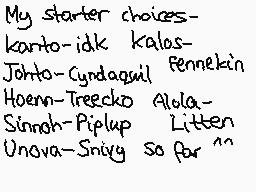 My starter choices-
Kanto-idk Kalos-
Johto-Cyndaquil Fennekin
Hoenn-Treecko Alola-
Sinnoh-Piplup Litten
Unova-Snivy so far ^^